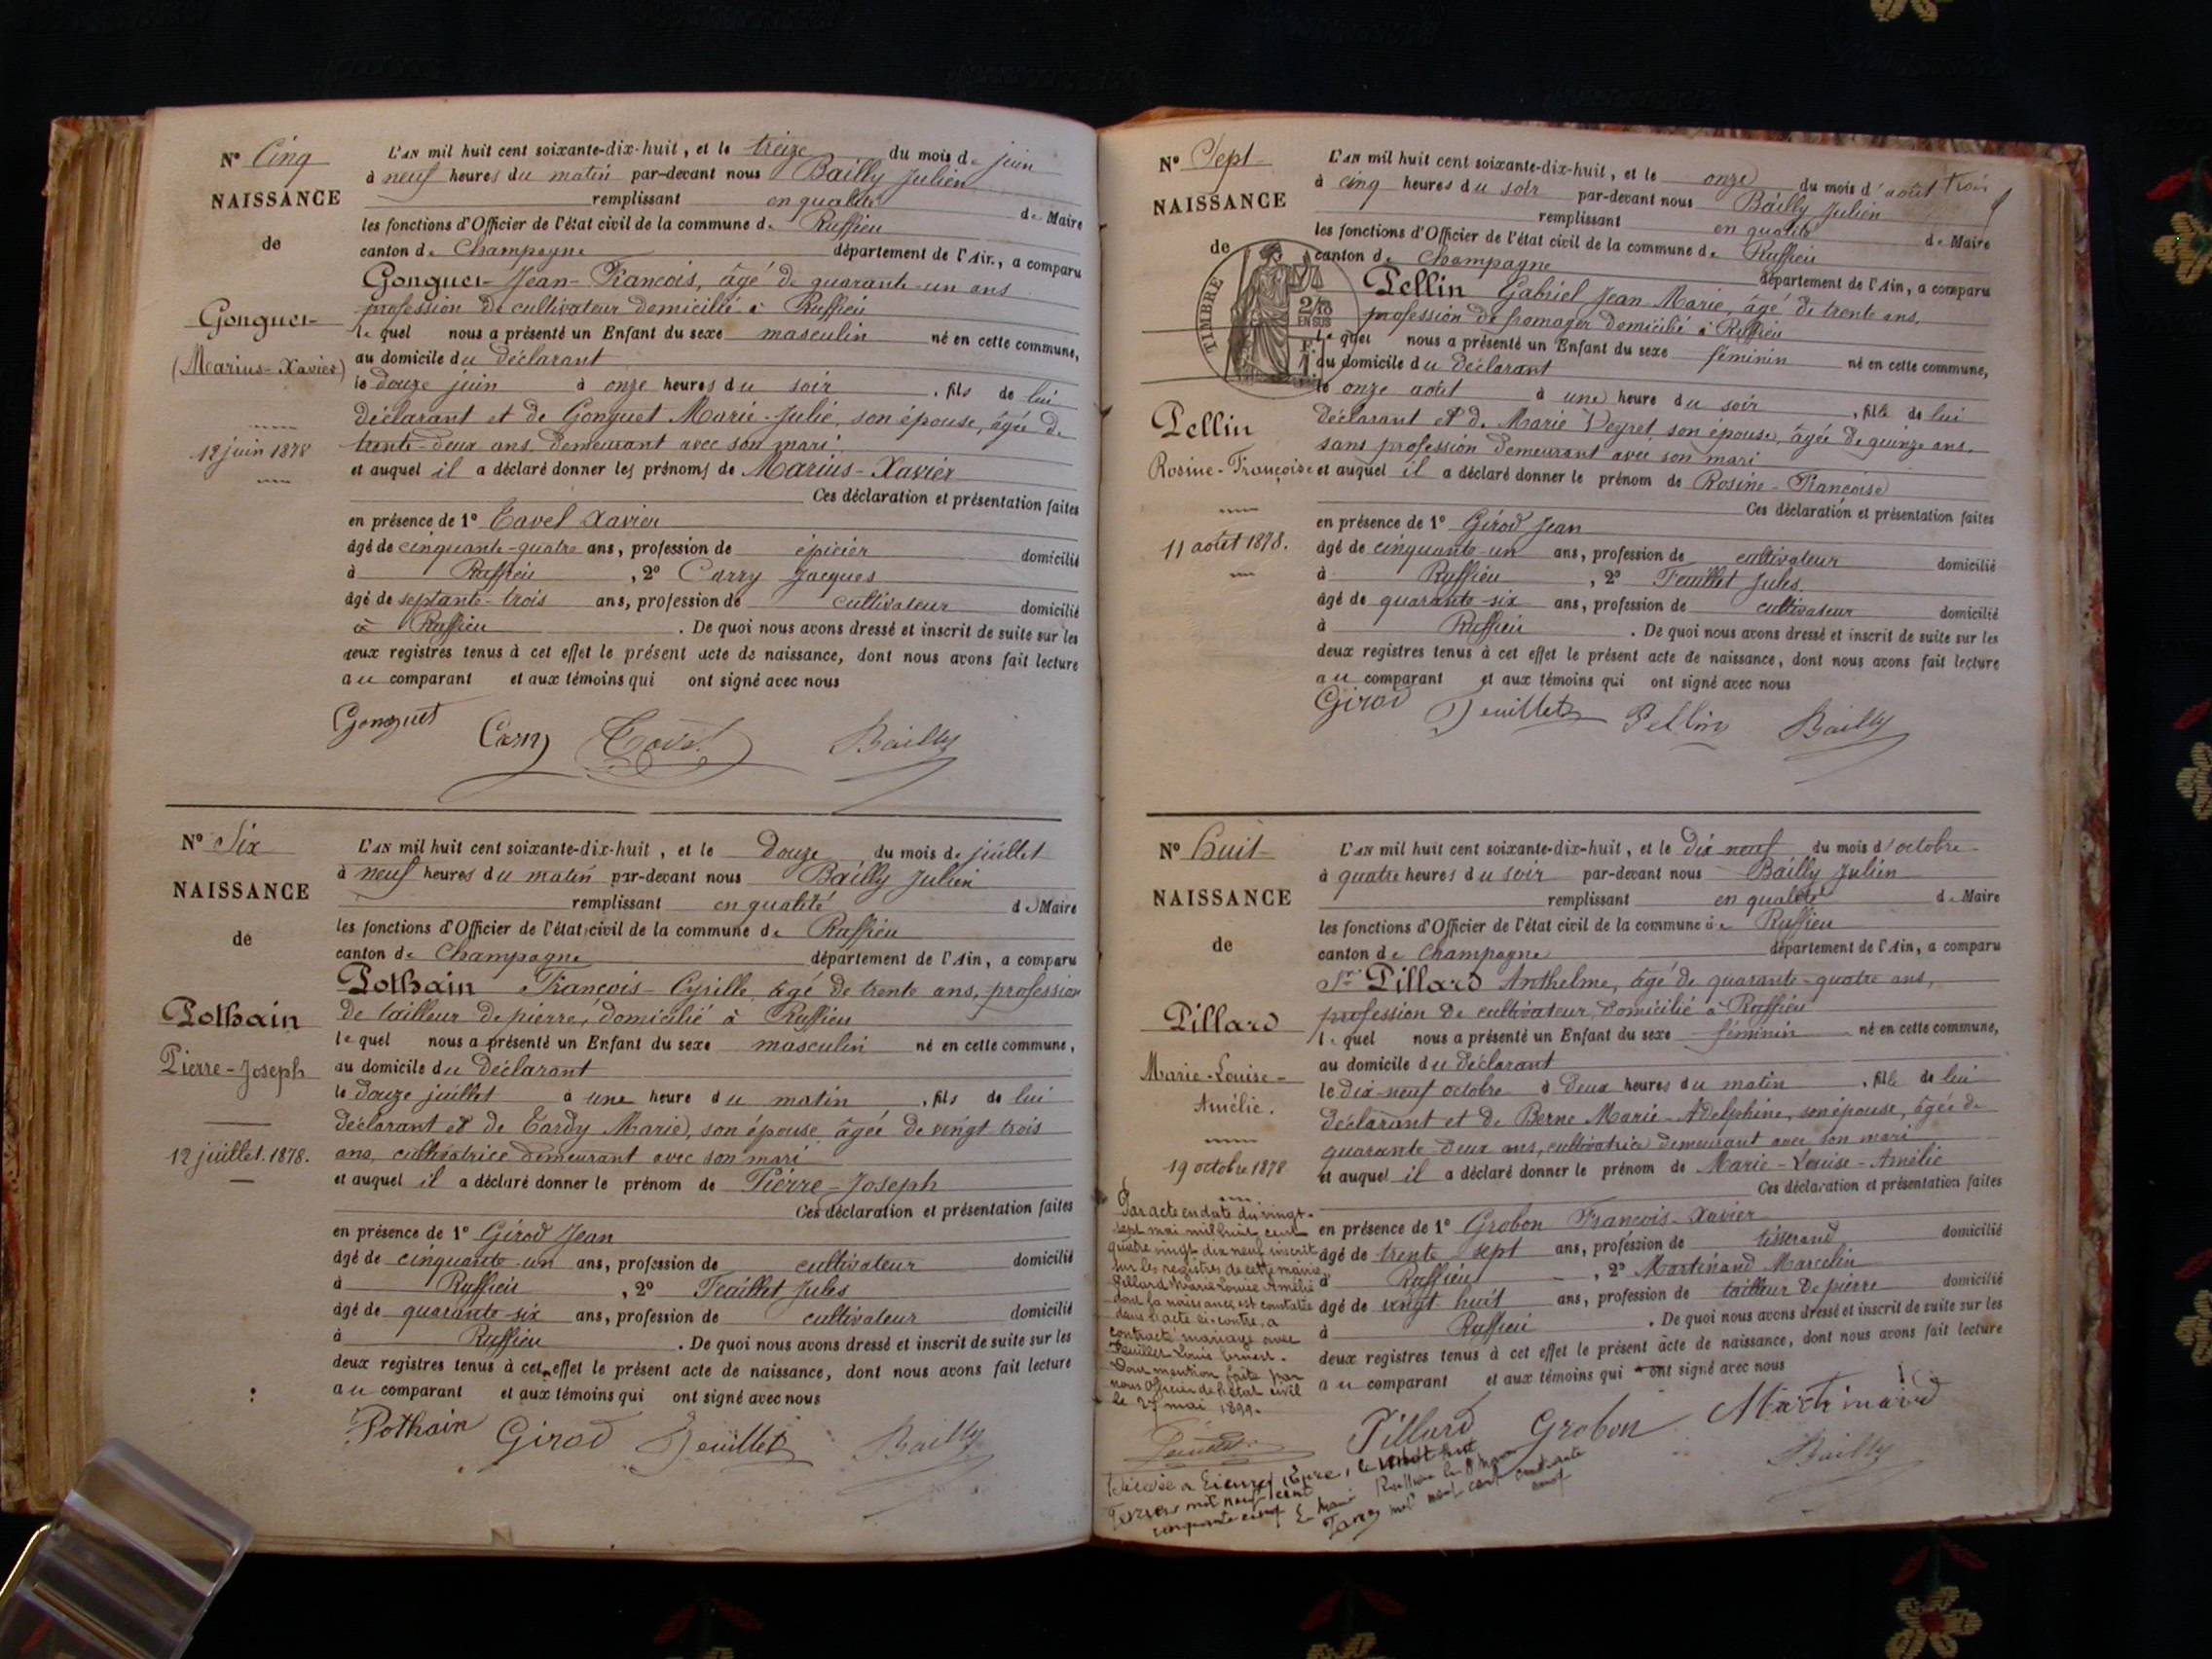 N° Cinq
NAISSANCE
de
Gonguet
(Marius-Xavier)
12 juin 1878
L'AN mil huit cent soixante-dix-huit, et le treize du mois de juin
à neuf heures du matin par-devant nous Bailly Julien
remplissant en qualité de Maire
les fonctions d'Officier de l'état civil de la commune de Ruffieu
canton de Champagne département de l'Ain, a comparu
Gonguet Jean-François, âgé de quarante-un ans
profession de cultivateur domicilié à Ruffieu
lequel nous a présenté un Enfant du sexe masculin né en cette commune,
au domicile du déclarant
le douze juin à onze heures du soir, fils de lui
déclarant et de Gonguet Marie-Julie, son épouse, âgée de
trente-deux ans, demeurant avec son mari
et auquel il a déclaré donner les prénoms de Marius-Xavier
Ces déclaration et présentation faites
en présence de 1° Tavel Xavier
âgé de cinquante-quatre ans, profession de épicier domicilié
à Ruffieu, 2° Carry Jacques
âgé de septante-trois ans, profession de cultivateur domicilié
à Ruffieu. De quoi nous avons dressé et inscrit de suite sur les
deux registres tenus à cet effet le présent acte de naissance, dont nous avons fait lecture
au comparant et aux témoins qui ont signé avec nous
Gonguet Carry Tavel Bailly
N° Six
NAISSANCE
de
Pothain
Pierre-Joseph
12 juillet 1878.
L'AN mil huit cent soixante-dix-huit, et le douze du mois de juillet
à neuf heures du matin par-devant nous Bailly Julien
remplissant en qualité de Maire
les fonctions d'Officier de l'état civil de la commune de Ruffieu
canton de Champagne département de l'Ain, a comparu
Pothain François-Cyrille, âgé de trente ans, profession
de tailleur de pierre, domicilié à Ruffieu
lequel nous a présenté un Enfant du sexe masculin né en cette commune,
au domicile du déclarant
le douze juillet à une heure du matin, fils de lui
déclarant et de Tardy Marie, son épouse âgée de vingt-trois
ans, cultivatrice demeurant avec son mari
et auquel il a déclaré donner le prénom de Pierre-Joseph
Ces déclaration et présentation faites
en présence de 1° Girod Jean
âgé de cinquante-un ans, profession de cultivateur domicilié
à Ruffieu, 2° Feuillet Jules
âgé de quarante-six ans, profession de cultivateur domicilié
à Ruffieu. De quoi nous avons dressé et inscrit de suite sur les
deux registres tenus à cet effet le présent acte de naissance, dont nous avons fait lecture
au comparant et aux témoins qui ont signé avec nous
Pothain Girod Feuillet Bailly
N° Sept
NAISSANCE
de
TIMBRE
2/10
EN SUS
Pellin
Rosine-Françoise
11 août 1878.
L'AN mil huit cent soixante-dix-huit, et le onze du mois d'août
à cinq heures du soir par-devant nous Bailly Julien
remplissant en qualité de Maire
les fonctions d'Officier de l'état civil de la commune de Ruffieu
canton de Champagne département de l'Ain, a comparu
Pellin Gabriel Jean-Marie, âgé de trente ans,
profession de fromager domicilié à Ruffieu
lequel nous a présenté un Enfant du sexe féminin né en cette commune,
au domicile du déclarant
le onze août à une heure du soir, fille de lui
déclarant et de Marie Veyret son épouse, âgée de quinze ans,
sans profession demeurant avec son mari
et auquel il a déclaré donner le prénom de Rosine-Françoise
Ces déclaration et présentation faites
en présence de 1° Girod Jean
âgé de cinquante-un ans, profession de cultivateur domicilié
à Ruffieu, 2° Feuillet Jules
âgé de quarante-six ans, profession de cultivateur domicilié
à Ruffieu. De quoi nous avons dressé et inscrit de suite sur les
deux registres tenus à cet effet le présent acte de naissance, dont nous avons fait lecture
au comparant et aux témoins qui ont signé avec nous
Girod Feuillet Pellin Bailly
N° Huit
NAISSANCE
de
Pillard
Marie-Louise-
Amélie.
19 octobre 1878
L'AN mil huit cent soixante-dix-huit, et le dix-neuf du mois d'octobre
à quatre heures du soir par-devant nous Bailly Julien
remplissant en qualité de Maire
les fonctions d'Officier de l'état civil de la commune de Ruffieu
canton de Champagne département de l'Ain, a comparu
Sr Pillard Anthelme, âgé de quarante-quatre ans,
profession de cultivateur, domicilié à Ruffieu
lequel nous a présenté un Enfant du sexe féminin né en cette commune,
au domicile du déclarant
le dix-neuf octobre à deux heures du matin, fille de lui
déclarant et de Berne Marie-Adelphine, son épouse, âgée de
quarante-deux ans, cultivatrice demeurant avec son mari
et auquel il a déclaré donner le prénom de Marie-Louise-Amélie
Ces déclaration et présentation faites
en présence de 1° Grobon François-Xavier
âgé de trente-sept ans, profession de tisserand domicilié
à Ruffieu, 2° Martinand Marcelin
âgé de vingt-huit ans, profession de tailleur de pierre domicilié
à Ruffieu. De quoi nous avons dressé et inscrit de suite sur les
deux registres tenus à cet effet le présent acte de naissance, dont nous avons fait lecture
au comparant et aux témoins qui ont signé avec nous
Pillard Grobon Martinand
Bailly
Par acte en date du vingt-
sept mai mil huit cent
quatre vingt dix neuf inscrit
sur les registres de cette mairie
Pillard Marie Louise Amélie
dont la naissance est constatée
dans l'acte ci-contre, a
contracté mariage avec
Feuillet Louis Ernest.
Dont mention faite par
nous Officier de l'état civil
le 27 mai 1899.
Feuillet
mil neuf cent
cinquante neuf Le Maire Ruffieu le
mil neuf cent cinquante
neuf